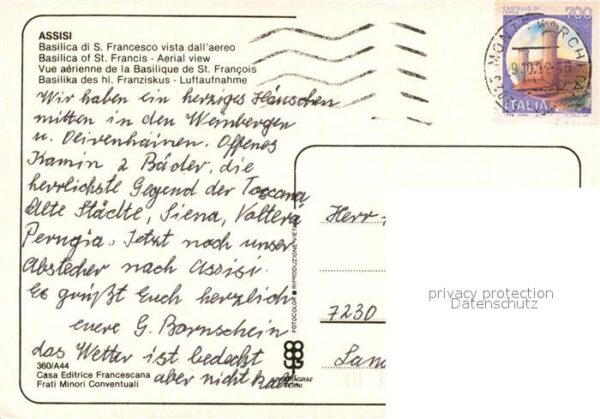 ASSISI
Basilica di S. Francesco vista dall'aereo
Basilica of St. Francis - Aerial view
Vue aérienne de la Basilique de St. François
Basilika des hl. Franziskus - Luftaufnahme
Wir haben ein herziges Häuschen
mitten in den Weinbergen
u. Olivenhainen. Offenes
Kamin 2 Bäder, die
herrlichste Gegend der Toscana
Alte Städte, Siena, Volterra
Perugia. Jetzt noch unser
Abstecher nach Assisi.
Es grüßt Euch herzlich
eure G. Bornschein
das Wetter ist bedeckt
aber nicht kalt
360/A44
Casa Editrice Francescana
Frati Minori Conventuali
FOTOCOLOR RIPRODUZIONE
CASTELLO DI
700
ITALIA
Herr
7230
privacy protection
Datenschutz